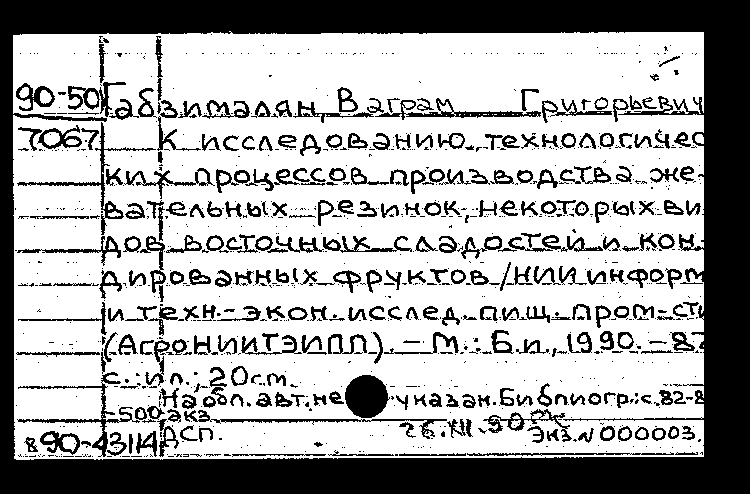 90-50 Габзималян, Ваграм Григорьевич
7067 К исследованию технологичес
ких процессов производства же-
вательных резинок, некоторых ви
дов восточных сладостей и кон-
дированных фруктов /НИИ информ
и техн.-экон. исслед. пищ. пром-сти
(АгроНИИТЭИПП). – М.: Б.и., 1990. – 87
с.: ил.; 20 см.
На обл. авт. не указан. Библиогр.: с. 82-8
-500 экз
в90-43114 ДСП. 26.XII.90 Экз.N 000003.